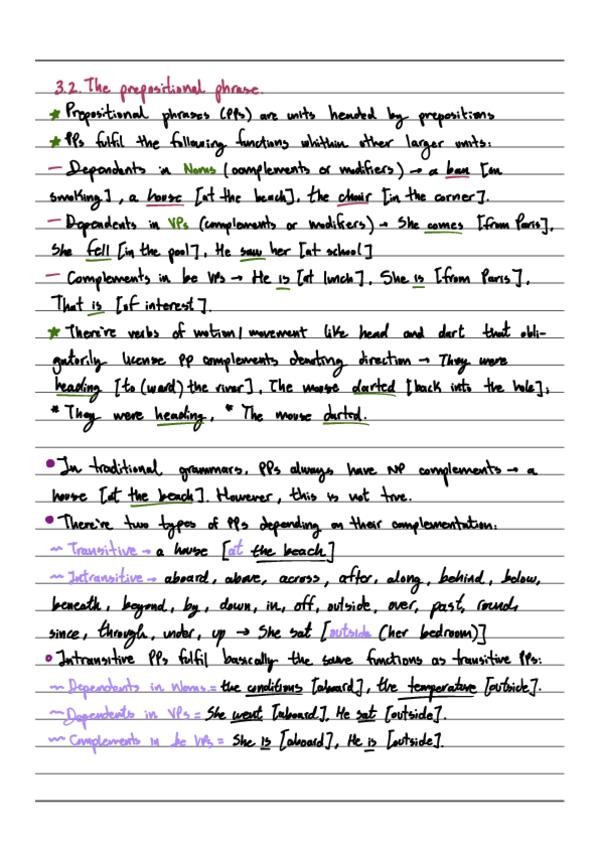 3.2. The prepositional phrase.
★ Prepositional phrases (PPs) are units headed by prepositions
★ PPs fulfil the following functions whithin other larger units:
— Dependents in Noms (complements or modifiers) → a ban [on
smoking], a house [at the beach], the chair [in the corner].
— Dependents in VPs (complements or modifiers) → She comes [from Paris],
She fell [in the pool], He saw her [at school]
— Complements in be VPs → He is [at lunch], She is [from Paris],
That is [of interest].
★ There're verbs of motion/movement like head and dart that obli-
gatorily license PP complements denoting direction → They were
heading [to(ward) the river], The mouse darted [back into the hole];
* They were heading, * The mouse darted.
• In traditional grammars, PPs always have NP complements → a
house [at the beach]. However, this is not true.
• There're two types of PPs depending on their complementation:
~ Transitive → a house [at the beach]
~ Intransitive → aboard, above, across, after, along, behind, below,
beneath, beyond, by, down, in, off, outside, over, past, round,
since, through, under, up → She sat [outside (her bedroom)]
• Intransitive PPs fulfil basically the same functions as transitive PPs:
~ Dependents in Noms = the conditions [aboard], the temperature [outside].
~ Dependents in VPs = She went [aboard], He sat [outside].
~ Complements in be VPs = She is [aboard], He is [outside].